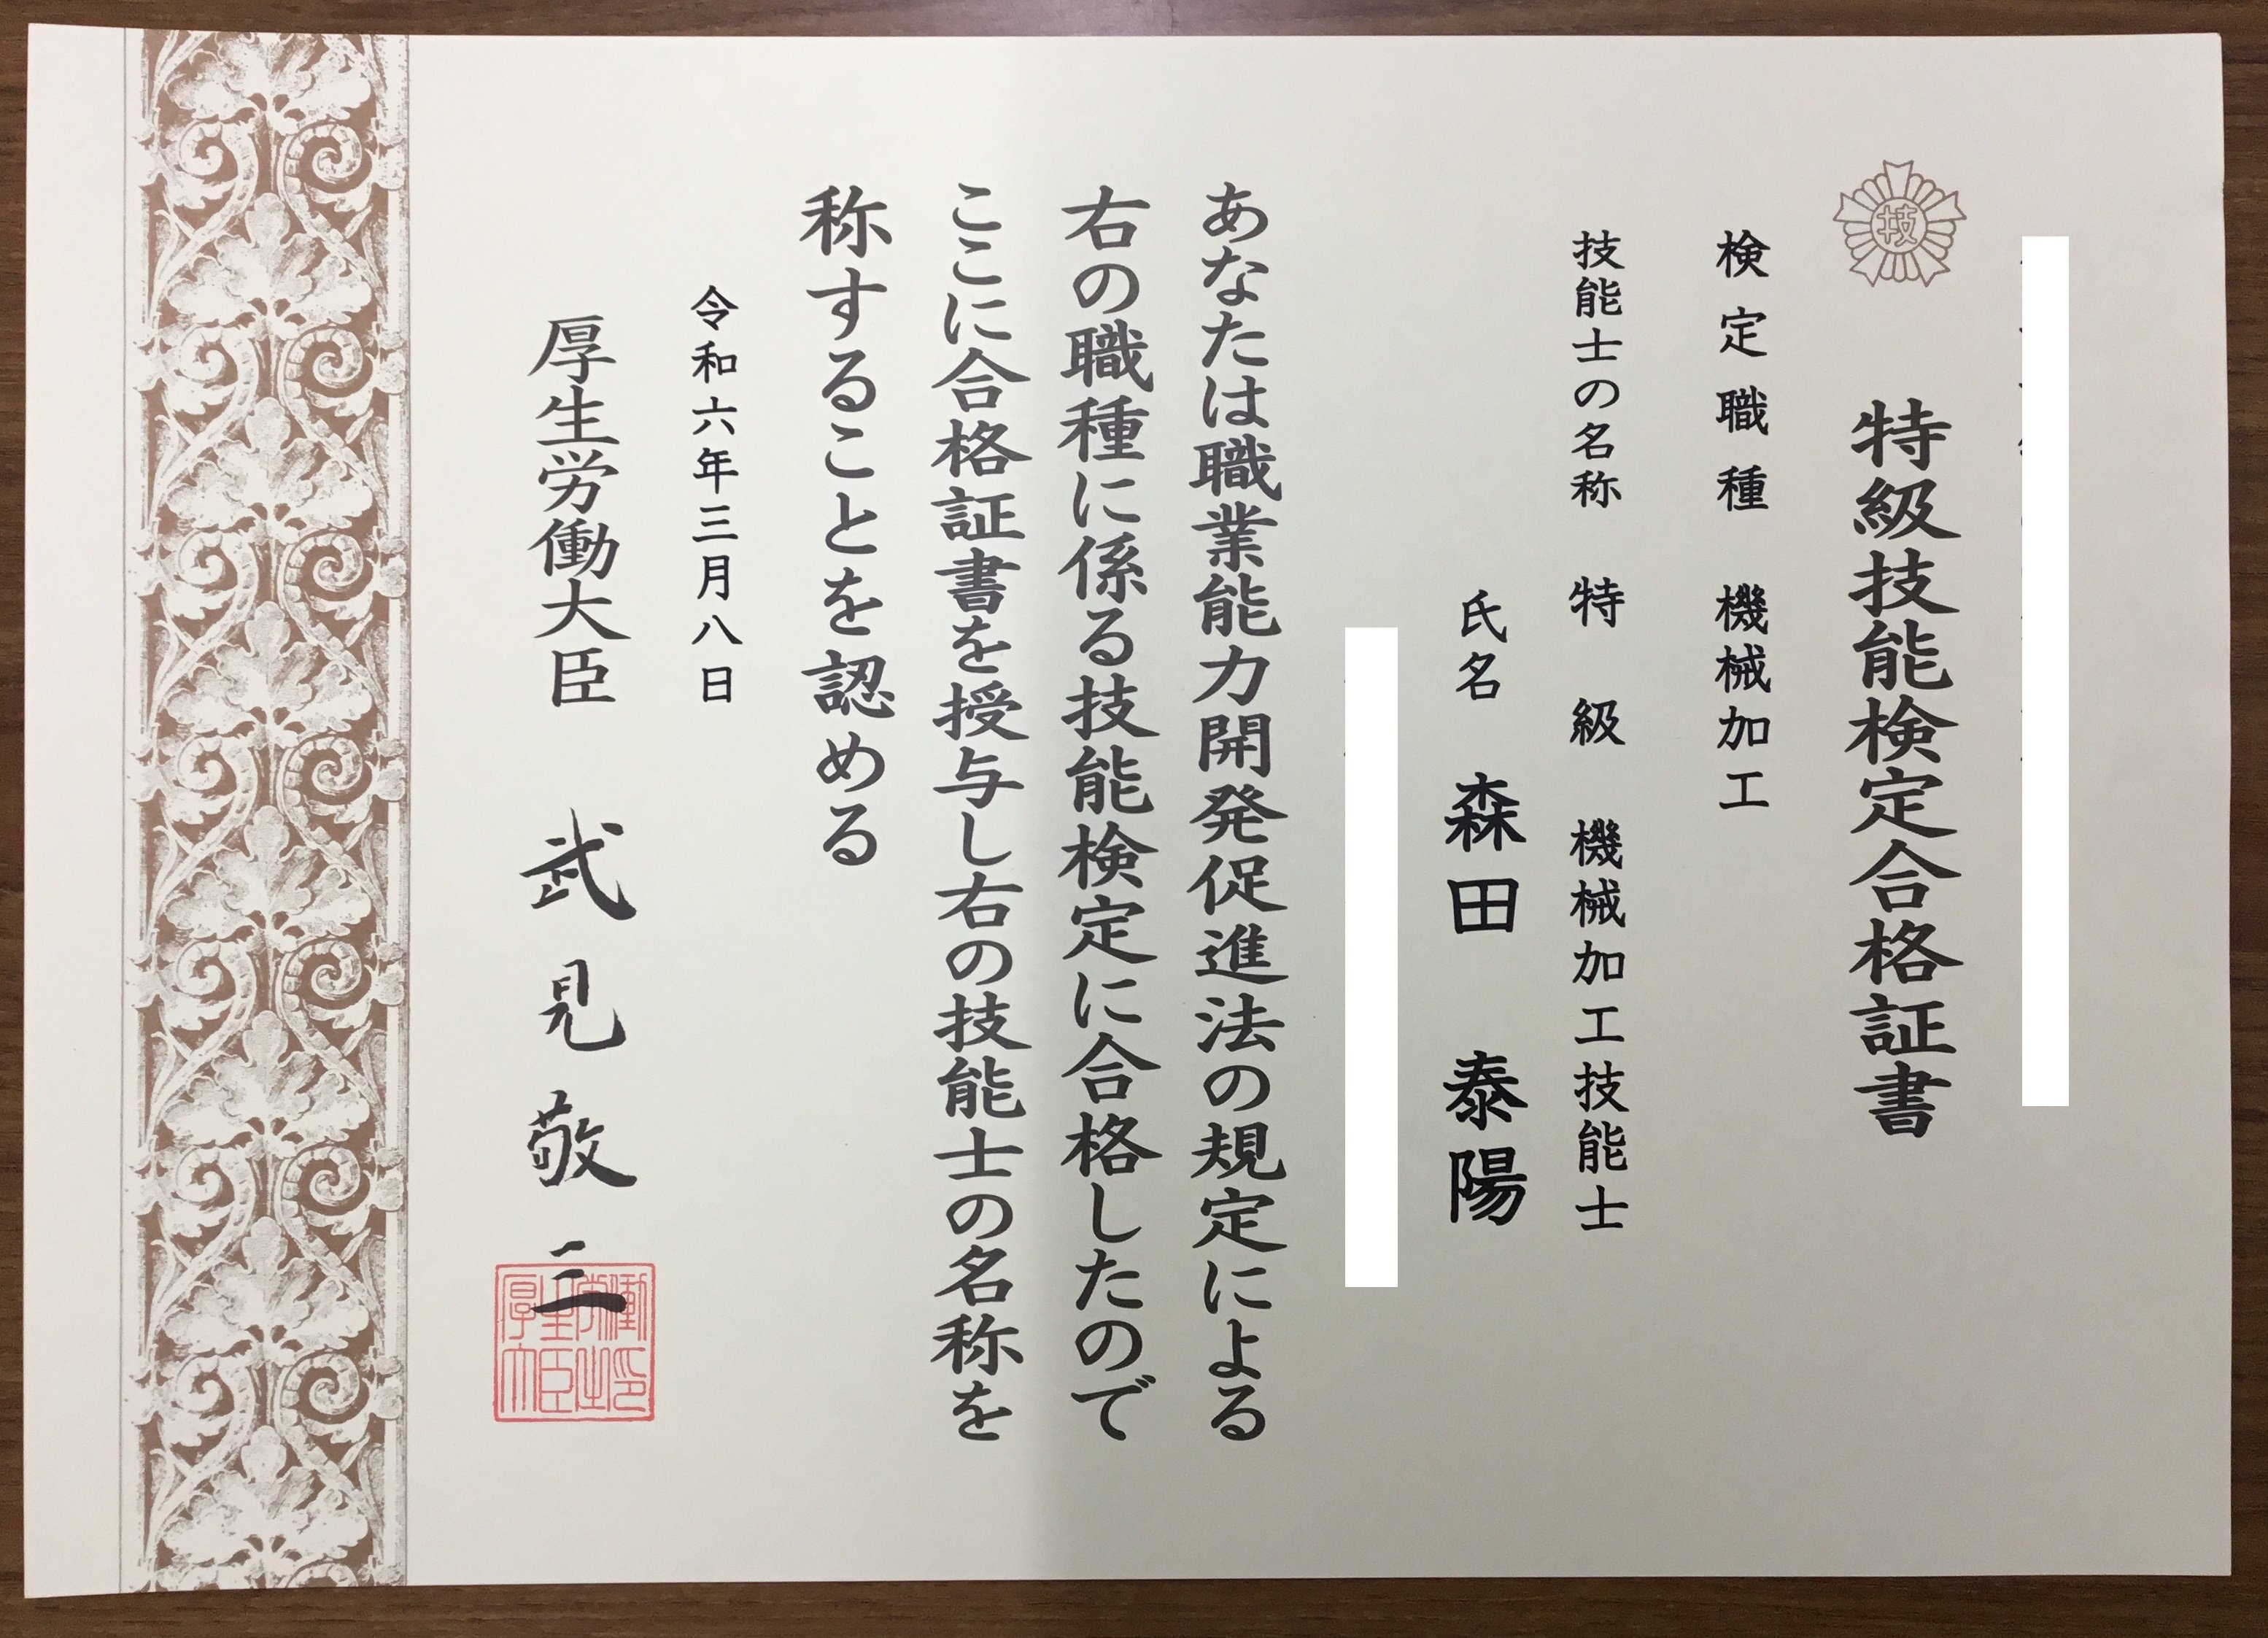 技
特級技能検定合格証書
検定職種 機械加工
技能士の名称 特級 機械加工技能士
氏名 森田 泰陽
あなたは職業能力開発促進法の規定による
右の職種に係る技能検定に合格したので
ここに合格証書を授与し右の技能士の名称を
称することを認める
令和六年三月八日
厚生労働大臣 武見敬三
厚生労働大臣之印